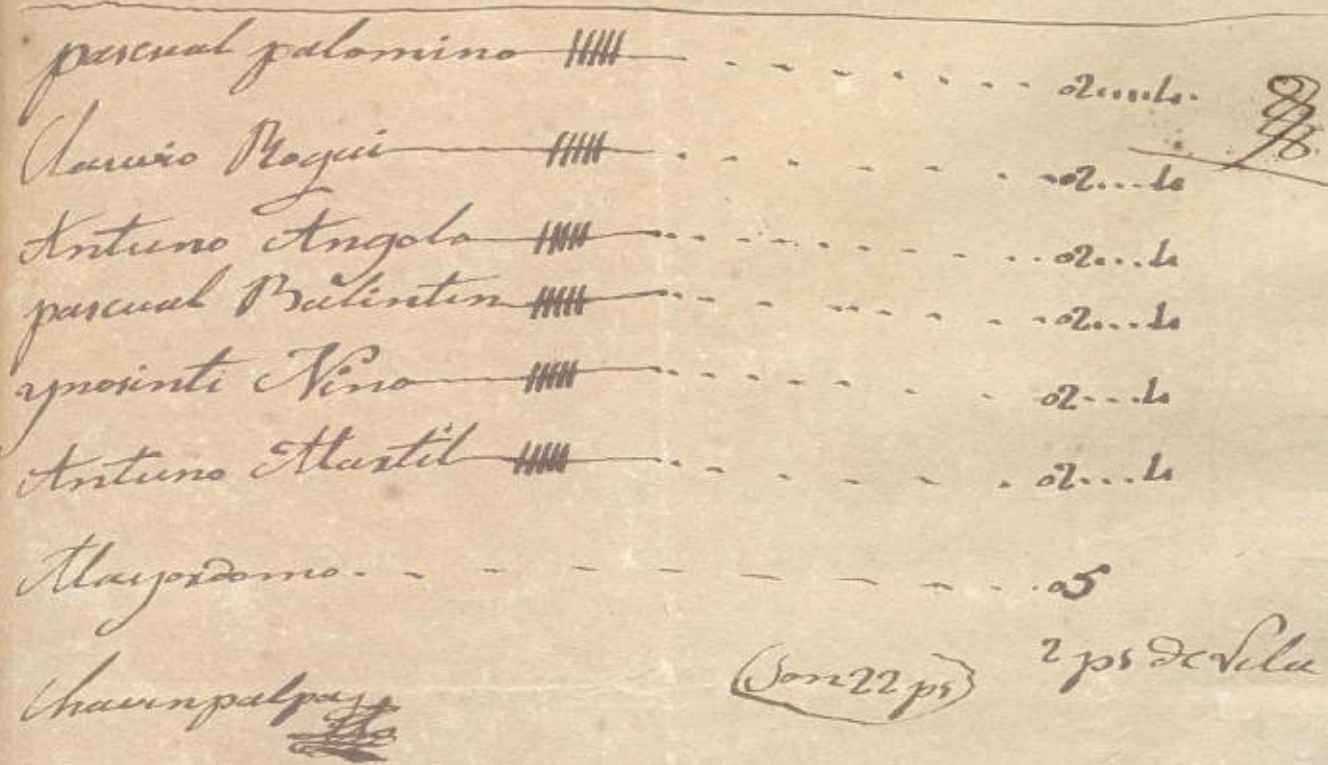 pascual palomino - - - - 02....4
Roqui - - - - 02....4
Antuno Angola - - - - 02....4
pascual Balintin - - - - 02....4
ynosinti Nino - - - - 02....4
Antuno Martil - - - - 02....4
Mayordomo - - - - 05
2 ps de Vela
(Son 22 ps)